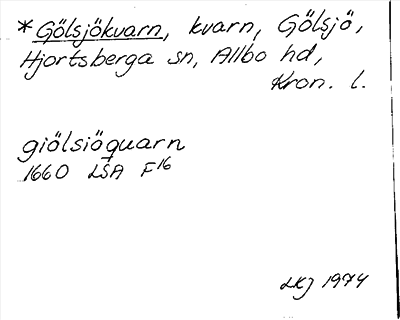 *Gölsjökvarn, kvarn, Gölsjö,
Hjortsberga sn, Allbo hd,
Kron. l.
giölsiöquarn
1660 LSA F16
LKJ 1974